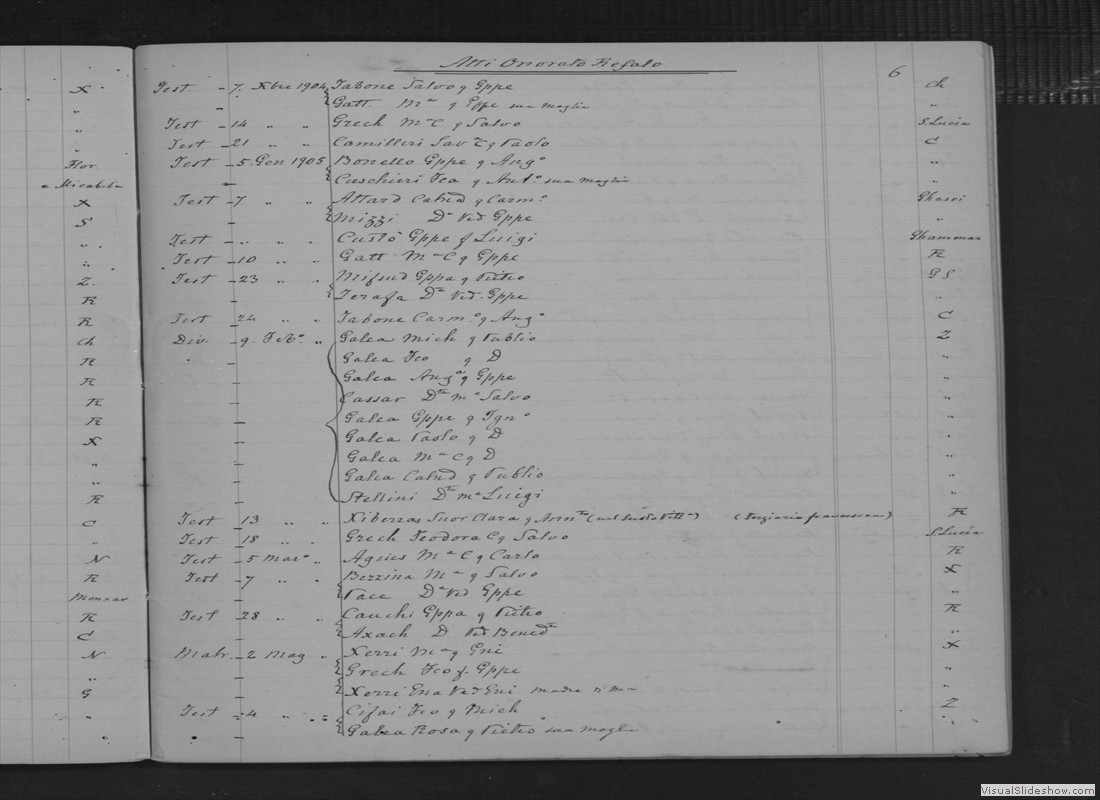 Atti Onorato Refalo
6
X Test - 7. Xbre 1904 Tabone Salvo q Gppe Ch
„ Gatt Mª q Gppe sua moglie „
„ Test - 14 „ „ Grech Mª C q Salvo S. Lucia
„ Test - 21 „ „ Camilleri Sav C q Paolo C
Flor. Test - 5 Gen 1905 Bonello Gppe q Angº „
Micabiba Cuschieri Fca q Antº sua moglie „
X Test - 7 „ „ Attard Catnd q Carmº Ghasri
S Mizzi Dª Ved Gppe „
„ Test - „ „ „ Custò Gppe f Luigi Ghammar
„ Test - 10 „ „ Gatt Mª C q Gppe R
Z. Test - 23 „ „ Mifsud Gppa q Pietro G S
R Terafa Dª Ved. Gppe „
R Test - 24 „ „ Tabone Carmº q Angº C
Ch Div. - 9. Febº „ Galea Mich q Publio Z
R Galea Fco q D „
R Galea Angª q Gppe „
R Cassar Dª mº Salvo „
R Galea Gppe q Ignº „
X Galea Paolo q D „
„ Galea Mª C q D „
„ Galea Catnd q Publio „
R Stellini Dª mº Luigi „
C Test - 13 „ „ Xiberras Suor Clara q (Terziaria francescana) R
Test - 18 „ „ Grech Teodora C q Salvo S. Lucia
N Test - 5 Marº „ Agius Mª C q Carlo R
R Test - 7 „ „ Bezzina Mª q Salvo X
Monxar Pace Dª Ved Gppe „
R Test - 28 „ „ Cauchi Gppa q Pietro R
C Axach D Ved Bened „
N Matr. - 2 Mag „ Xerri Mª q Gni X
„ Grech Fco f. Gppe „
G Xerri Gna Ved Gni madre „
„ Test - 4 „ „ Cifai Fco q Mich Z
Galea Rosa q Pietro sua moglie „
VisualSlideshow.com